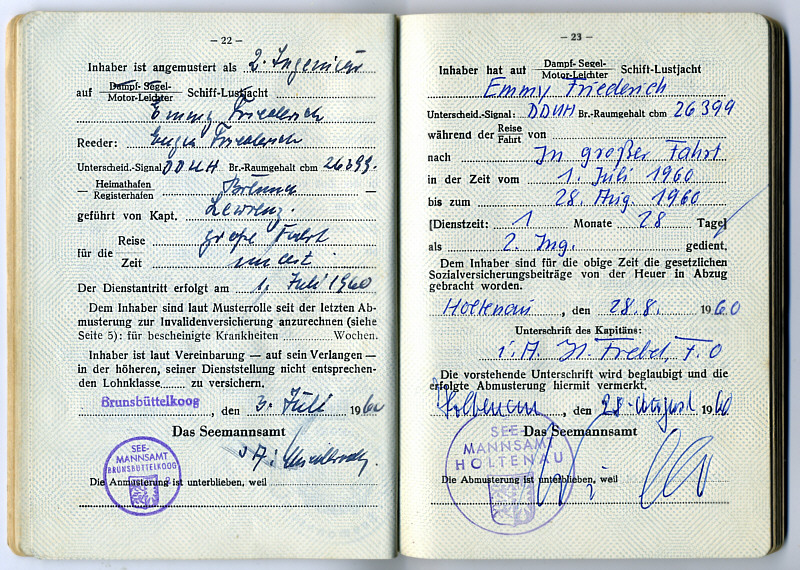 – 22 –
Inhaber ist angemustert als 2. Ingenieur
auf Dampf- Segel- Schiff-Lustjacht
Motor-Leichter
Emmy Friederich
Reeder: Friederich
Unterscheid.-Signal DDUH Br.-Raumgehalt cbm 26399.
— Heimathafen Bremen —
Registerhafen
geführt von Kapt. Lewrenz.
für die Reise große Fahrt
Zeit unbest.
Der Dienstantritt erfolgt am 1. Juli 1960
Dem Inhaber sind laut Musterrolle seit der letzten Ab-
musterung zur Invalidenversicherung anzurechnen (siehe
Seite 5): für bescheinigte Krankheiten Wochen.
Inhaber ist laut Vereinbarung — auf sein Verlangen —
in der höheren, seiner Dienststellung nicht entsprechen-
den Lohnklasse zu versichern.
Brunsbüttelkoog, den 3. Juli 1960
Das Seemannsamt
i A:
SEE-
MANNSAMT
BRUNSBÜTTELKOOG
Die Anmusterung ist unterblieben, weil
– 23 –
Inhaber hat auf Dampf- Segel- Schiff-Lustjacht
Motor-Leichter
Emmy Friederich
Unterscheid.-Signal: DDUH Br.-Raumgehalt cbm 26399
während der Reise von
Fahrt
nach In großer Fahrt
in der Zeit vom 1. Juli 1960
bis zum 28. Aug. 1960
[Dienstzeit: 1 Monate 28 Tage]
als 2. Ing. gedient.
Dem Inhaber sind für die obige Zeit die gesetzlichen
Sozialversicherungsbeiträge von der Heuer in Abzug
gebracht worden.
Holtenau, den 28.8. 1960
Unterschrift des Kapitäns:
i.A.
Die vorstehende Unterschrift wird beglaubigt und die
erfolgte Abmusterung hiermit vermerkt.
Holtenau, den 28. August 1960
Das Seemannsamt
SEE-
MANNSAMT
HOLTENAU
Die Abmusterung ist unterblieben, weil